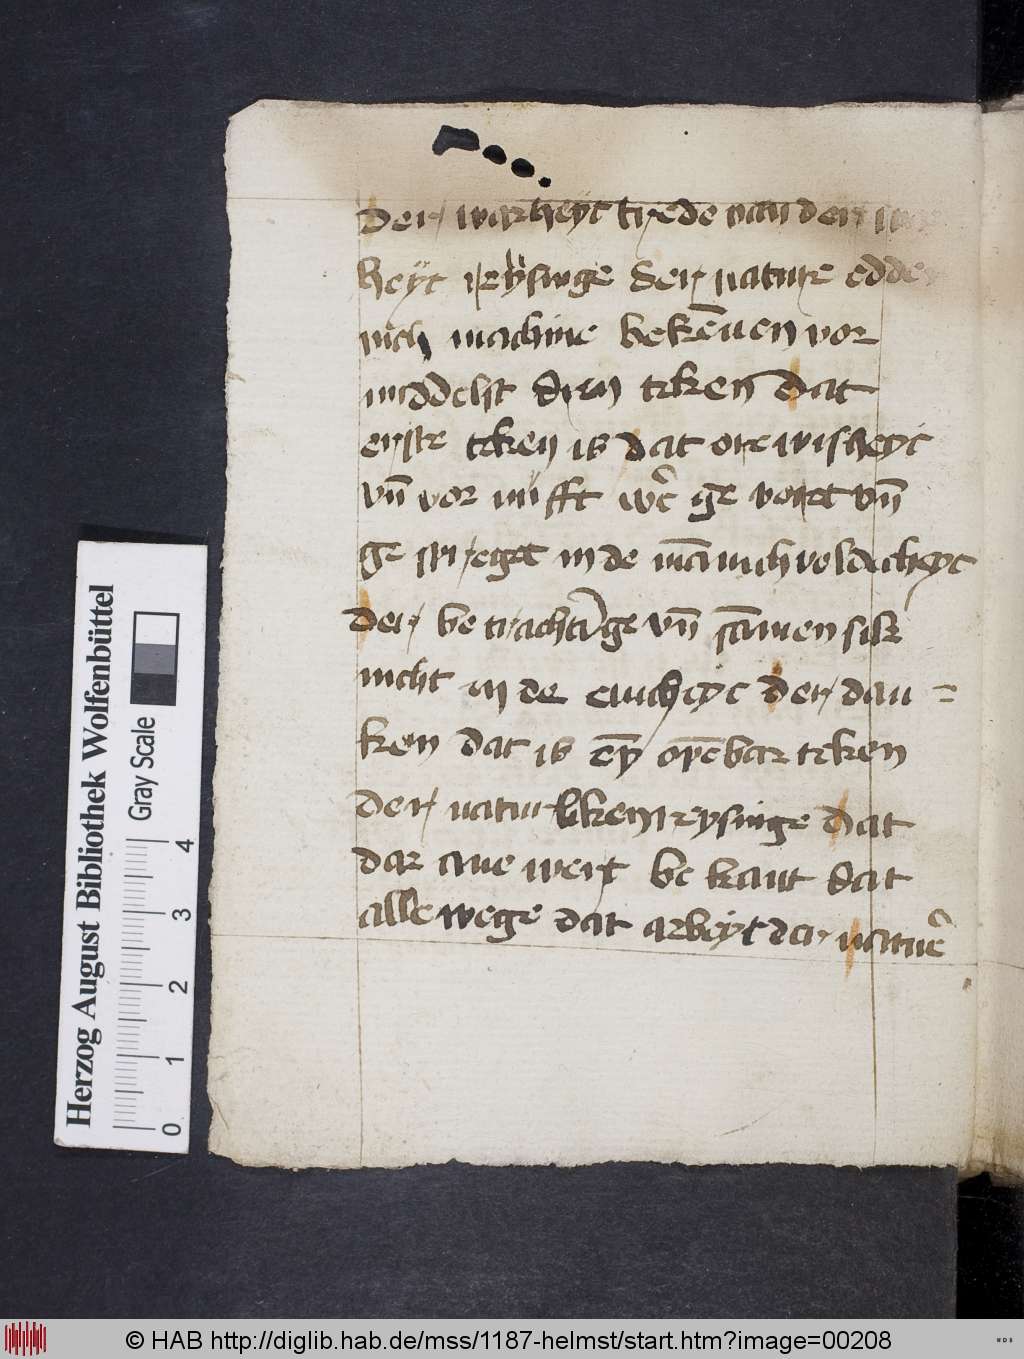 der warheyt trede van der
heyt irysinge der nature edder
mch machme bekēnen vor
middelst dren teken dat
erste teken is dat ore wisheyt
vn̄ vor nufft wc̄ ge voret vn̄
ge spreget in de mānichvoldicheyt
der be trachtīge vn̄ sāmen sik
nicht in de enicheyt der dan =
ken dat is ey̅ opēbar teken
der naturliken reysinge dat
dar ane wert be kant dat
alle wege dat arbeyt der natuer
Herzog August Bibliothek Wolfenbüttel
Gray Scale
0 1 2 3 4
© HAB http://diglib.hab.de/mss/1187-helmst/start.htm?image=00208
WDB